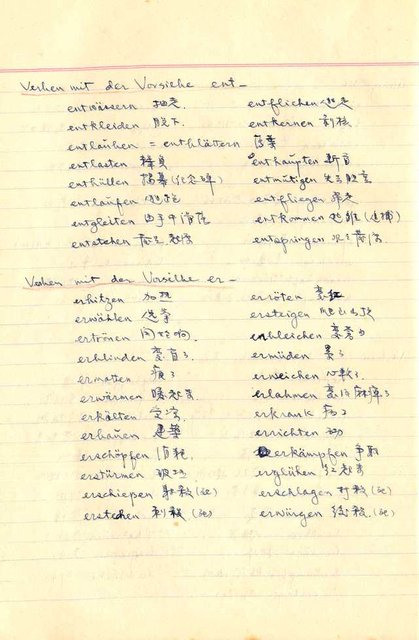 Verben mit der Vorsilbe ent-
entwässern 
entfliehen 逃走
entkleiden 脱下 entkernen 剥核
entlauben = entblättern 落葉
entlasten 释负 enthaupten 斩首
enthüllen 揭幕(纪念碑) entmutigen
entlaufen 逃跑 entfliegen 飛走
entgleiten 由手中滑落 entkommen 逃離(逮捕)
entstehen entspringen
Verben mit der Vorsilbe er-
erhitzen 加热 erröten 変红
erwählen 选举 ersteigen
ertönen erbleichen
erblinden 变盲了 ermüden 累了
ermatten 疲了 erweichen 心軟了
erwärmen erlahmen
erkälten 受凉 erkrank 病了
erbauen 建築 errichten
erschöpfen 消耗 erkämpfen 争取
erstürmen 攻 erglühen
erschießen 射殺(死) erschlagen 打殺(死)
erstechen 刺殺(死) erwürgen 絞殺(死)